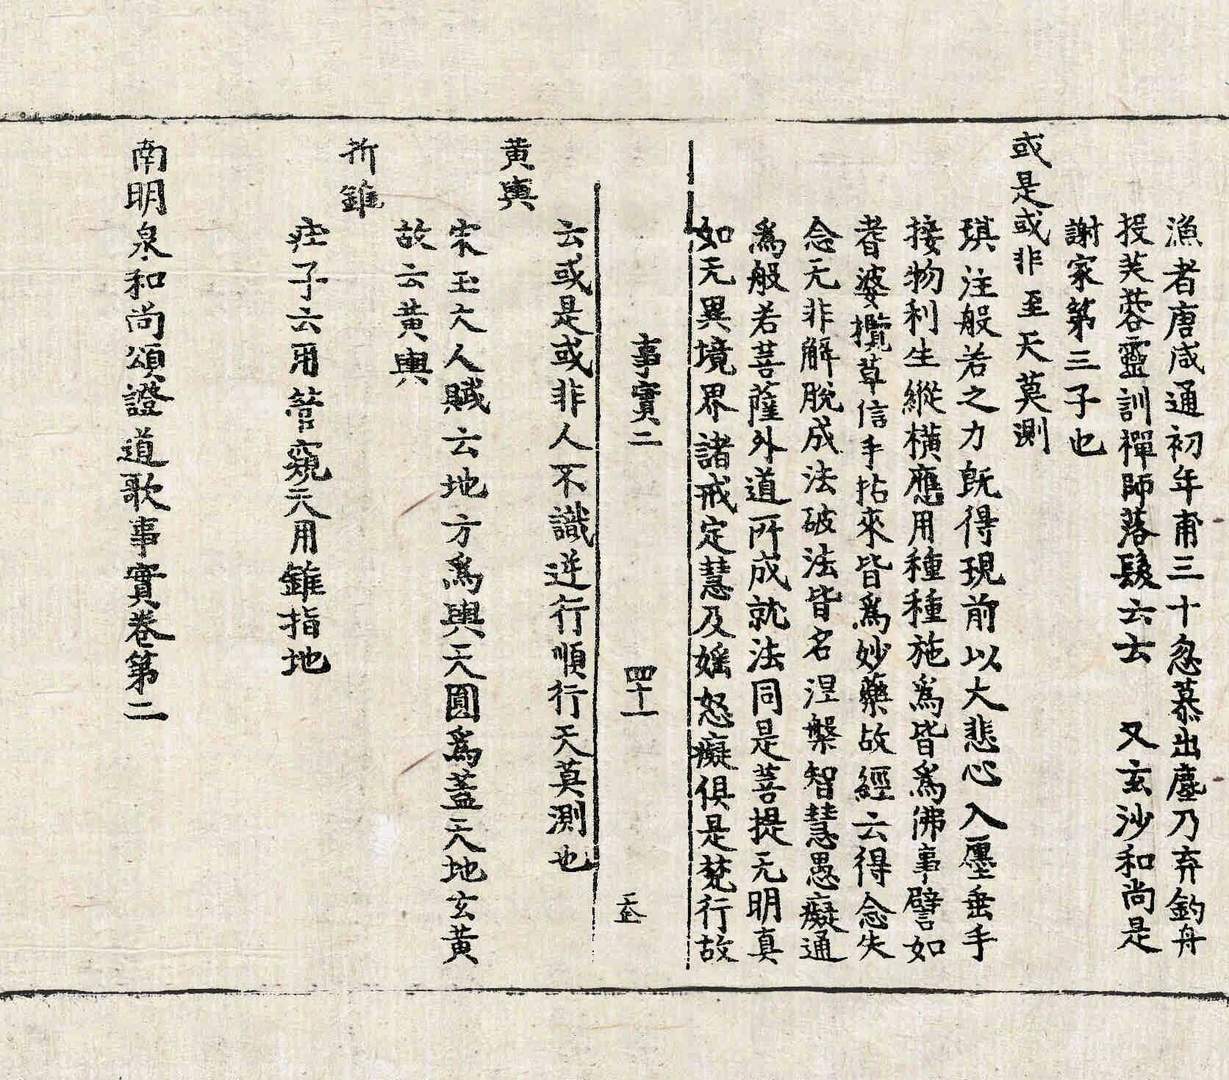 漁者唐咸通初年甫三十忽慕出塵乃弃釣舟
投芙蓉靈訓禪師落髮云云　又玄沙和尚是
謝家第三子也
或是或非至天莫測
琪注般若之力旣得現前以大悲心入廛垂手
接物利生縱橫應用種種施爲皆爲佛事譬如
耆婆攬草信手拈來皆爲妙藥故經云得念失
念无非解脫成法破法皆名涅槃智慧愚癡通
爲般若菩薩外道所成就法同是菩提无明真
如无異境界諸戒定慧及婬怒癡俱是梵行故
事實二
四十一
云或是或非人不識逆行順行天莫測也
黃輿
宋玉大人賦云地方爲輿天圓爲蓋天地玄黃
故云黃輿
折錐
庄子云用管窺天用錐指地
南明泉和尚頌證道歌事實卷第二